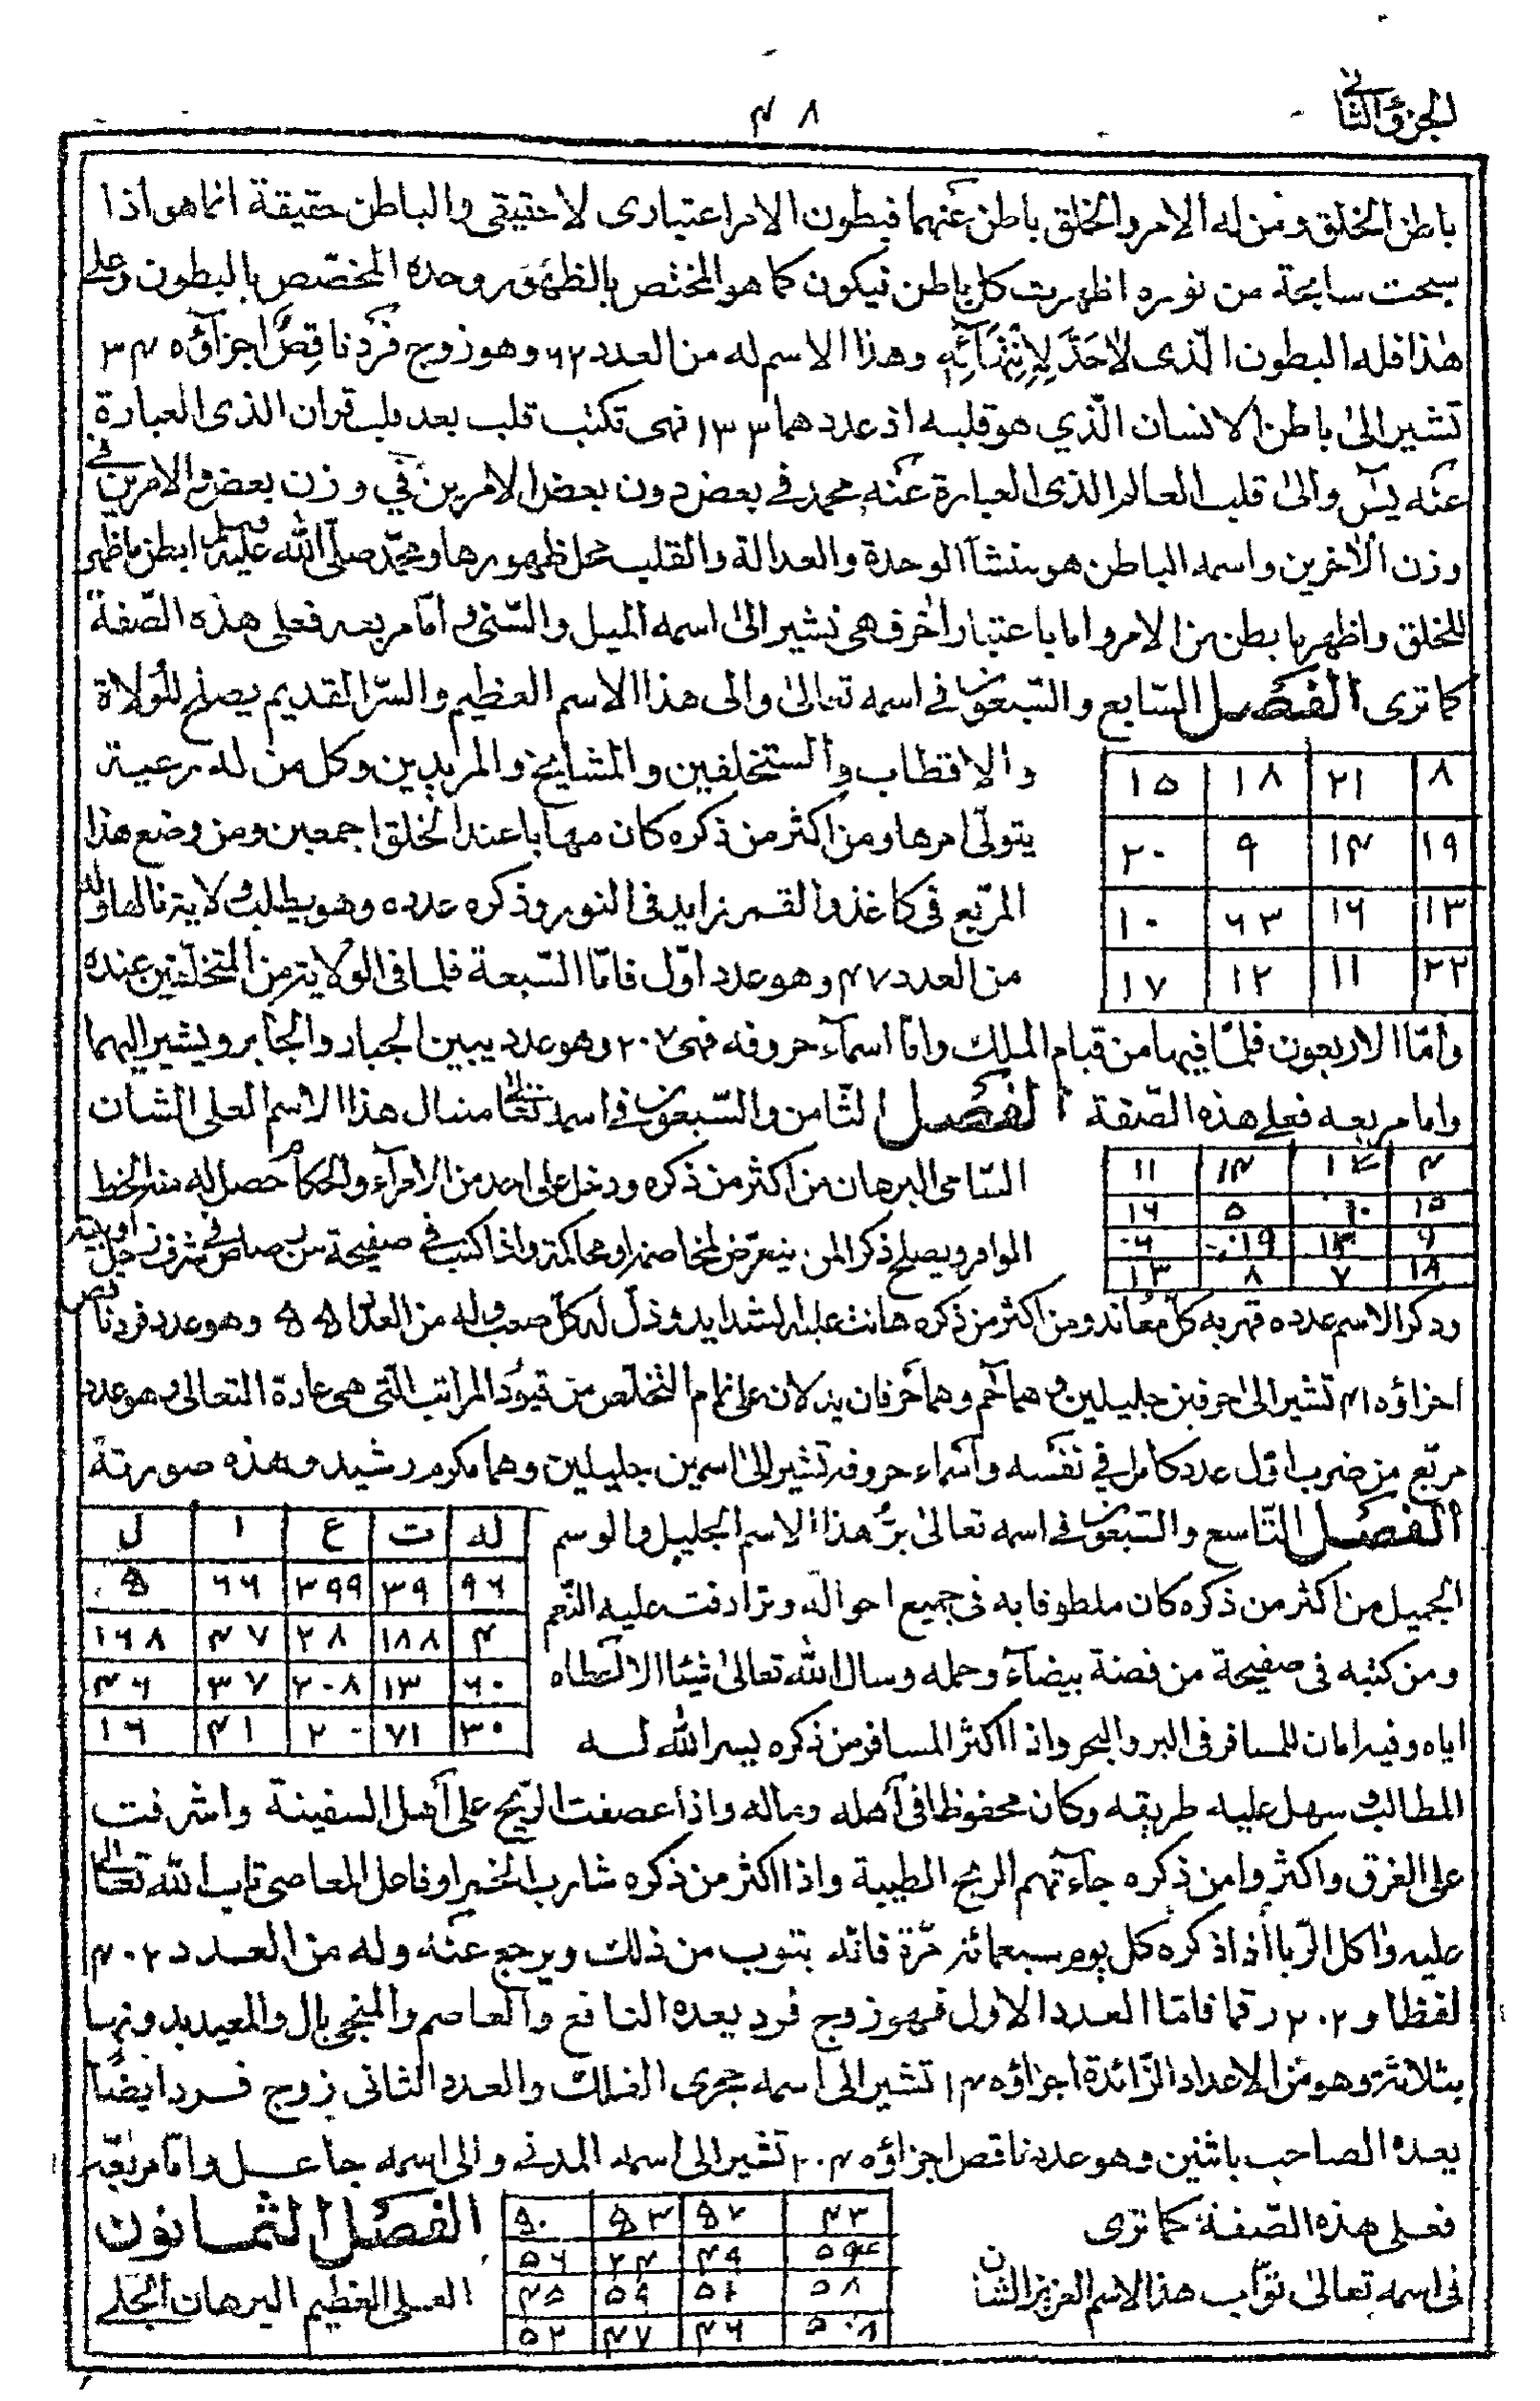 الجزؤ الثاني
٤٨
باطن الخلق ومن له الامر والخلق باطن عنهما فبطون الامر اعتبارى لا حقيقى والباطن حقيقة انما هو اذا
سبحت سابحة من نوره اظهرت كل باطن فيكون كما هو المختص بالظهور وحده المخصص بالبطون وعلى
هذا فله البطون الّذى لاحَدَّ لِانْتِهَائِهِ وهذا الاسم له من العدد ٦٢ وهو زوج فَرْد ناقِصٌ اجزاؤه ٣٤
تشير الى باطن الانسان الّذي هو قلبه اذ عددهما ١٣٣ فهى تكتب قلب بعد قلب قران الذى العبارة
عنه يسۤ والى قلب العالم الذى العبارة عنه محمد فى بعض دون بعض الامرين في وزن بعض والامرين في
وزن الاخرين واسمه الباطن هو منشأ الوحدة والعدالة والقلب محل ظهورها ومحمد صلّى الله عليه وسلم ابطن ماظهر
للخلق واظهر ما بطن من الامر واما باعتبار اخر فهى تشير الى اسمه المميل والسّنى واما مربعه فعلى هذه الصّفة
كما ترى الفصل السّابع والسّبعون فى اسمه تعالى والى هذا الاسم العظيم والسّر القديم يصلح للولاة
والاقطاب والمستخلفين والمشايخ والمريدين وكل من له رعية
يتولّى امرها ومن اكثر من ذكره كان مهابا عند الخلق اجمعين ومن وضع هذا
المربّع فى كاغذ والقمر زايد فى النور وذكره عدده وهو يطلب ولاية نالها وله
من العدد ٤٧ وهو عدد اوّل فامّا السّبعة فلما فى الولاية من المتخلّفين عنده
٨ ٢١ ١٨ ١٥
١٩ ١٤ ٩ ٢٠
١٣ ١٦ ٦٣ ١٠
٢٢ ١١ ١٢ ١٧
وأمّا الاربعون فلمّا فيها من قيام الملك وامّا اسماء حروفه فهى ٢٠٧ وهو عدد يبين الجبار والجابر ويشير اليهما
واما مربعه فعلى هذه الصّفة الفصل الثّامن والسّبعون فى اسمه تعالى متعال هذا الاسم العلى الشان
السّامى البرهان من اكثر من ذكره ودخل على احد من الامراء والحكام حصل له منه الحظ
الوافر ويصلح ذكرا لمن يتعرّض لمخاصمة او محاكمة واذا كتب فى صفيحة من رصاص فى شرف زحل
٤ ١٤ ١١
١٥ ١٠ ٥ ١٦
٩ ١٣ ١٩ ٠٦
١٨ ٧ ٨ ١٣
وذكر الاسم عدده قهر به كلّ معاند ومن اكثر من ذكره هانت عليه الشدايد وذلّ له كلّ صعب وله من العدد ٥٤١ وهو عدد فرد ناقص
اجزاؤه ٤١ تشير الى حرفين جليلين وهما حٓمٓ وهما حرفان يدلان على تمام التخلّص من قيود المراتب الّتى هى عادة التعالى وهو عدد
مربّع من ضرب اوّل عدد كامل في نفسه واسماء حروفه تشير الى اسمين جليلين وهما مكرم رشيد وهذه صورتة
الفصل التّاسع والسّبعون فى اسمه تعالى برّ هذا الاسم الجليل والوسم
الجميل من اكثر من ذكره كان ملطوفا به فى جميع احواله وترادفت عليه النّعم
ومن كتبه فى صفيحة من فضة بيضاء وحمله وسال الله تعالى شيئا الا اعطاه
اياه وفيه امان للمسافر فى البر والبحر واذا اكثر المسافر من ذكره يسر الله لـه
له ت ع ا ل
٩٦ ٣٩ ٣٩٩ ٦٦ ٥
٤ ١٨٨ ٢٨ ٤٧ ١٦٨
٦٠ ١٣ ٢٠٨ ٣٧ ٤٦
٣٠ ٧١ ٢٠ ٤١ ١٦
المطالب وسهل عليه طريقه وكان محفوظا فى أهله وماله واذا عصفت الرّيح على أهل السفينة واشرفت
على الغرق واكثروا من ذكره جاءتهم الريح الطيبة واذا اكثر من ذكره شارب الخمر او فاعل المعاصى تاب الله تعالى
عليه واكل الرّبا اذا ذكره كل يوم سبعمائة مرّة فانه يتوب من ذلك ويرجع عنه وله من العدد ٤٠٢
لفظا و ٢٠٢ رقما فامّا العدد الاول فهو زوج فرد يعده النافع والعاصم والمنجى بال والمعيد بدونها
بثلاثة وهو من الاعداد الزّائدة اجزاؤه ٤١ تشير الى اسمه مجرى الفلك والعدد الثانى زوج فرد ايضاً
يعده الصاحب باثنين وهو عدد ناقص اجزاؤه ١٠٤ تشير الى اسمه المدنى والى اسمه جاعل وامّا مربّعه
فعلى هذه الصّفة كما ترى الفصل الثمانون
فى اسمه تعالى توّاب هذا الاسم العزيز الشان العلى العظيم البرهان الجلى
٤٣ ٥٢ ٥٣ ٥٠
٥٤ ٤٩ ٢٤ ٥٦
٥٨ ٥١ ٥٩ ٤٥
٥٠٨ ٤٦ ٤٧ ٥٢